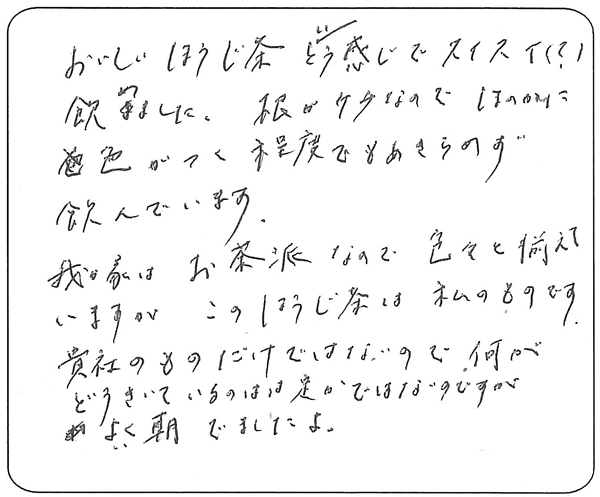 おいしいほうじ茶 どう感じでスイスイ(?)
飲めました。根がケチなのでほのかに
色がつく程度でもあきらめず
飲んでいます。
我が家はお茶派なので色々と揃えて
いますが このほうじ茶は私のものです。
貴社のものだけではないので何が
どうきいているのかは定かではないのですが
よく朝でましたよ。